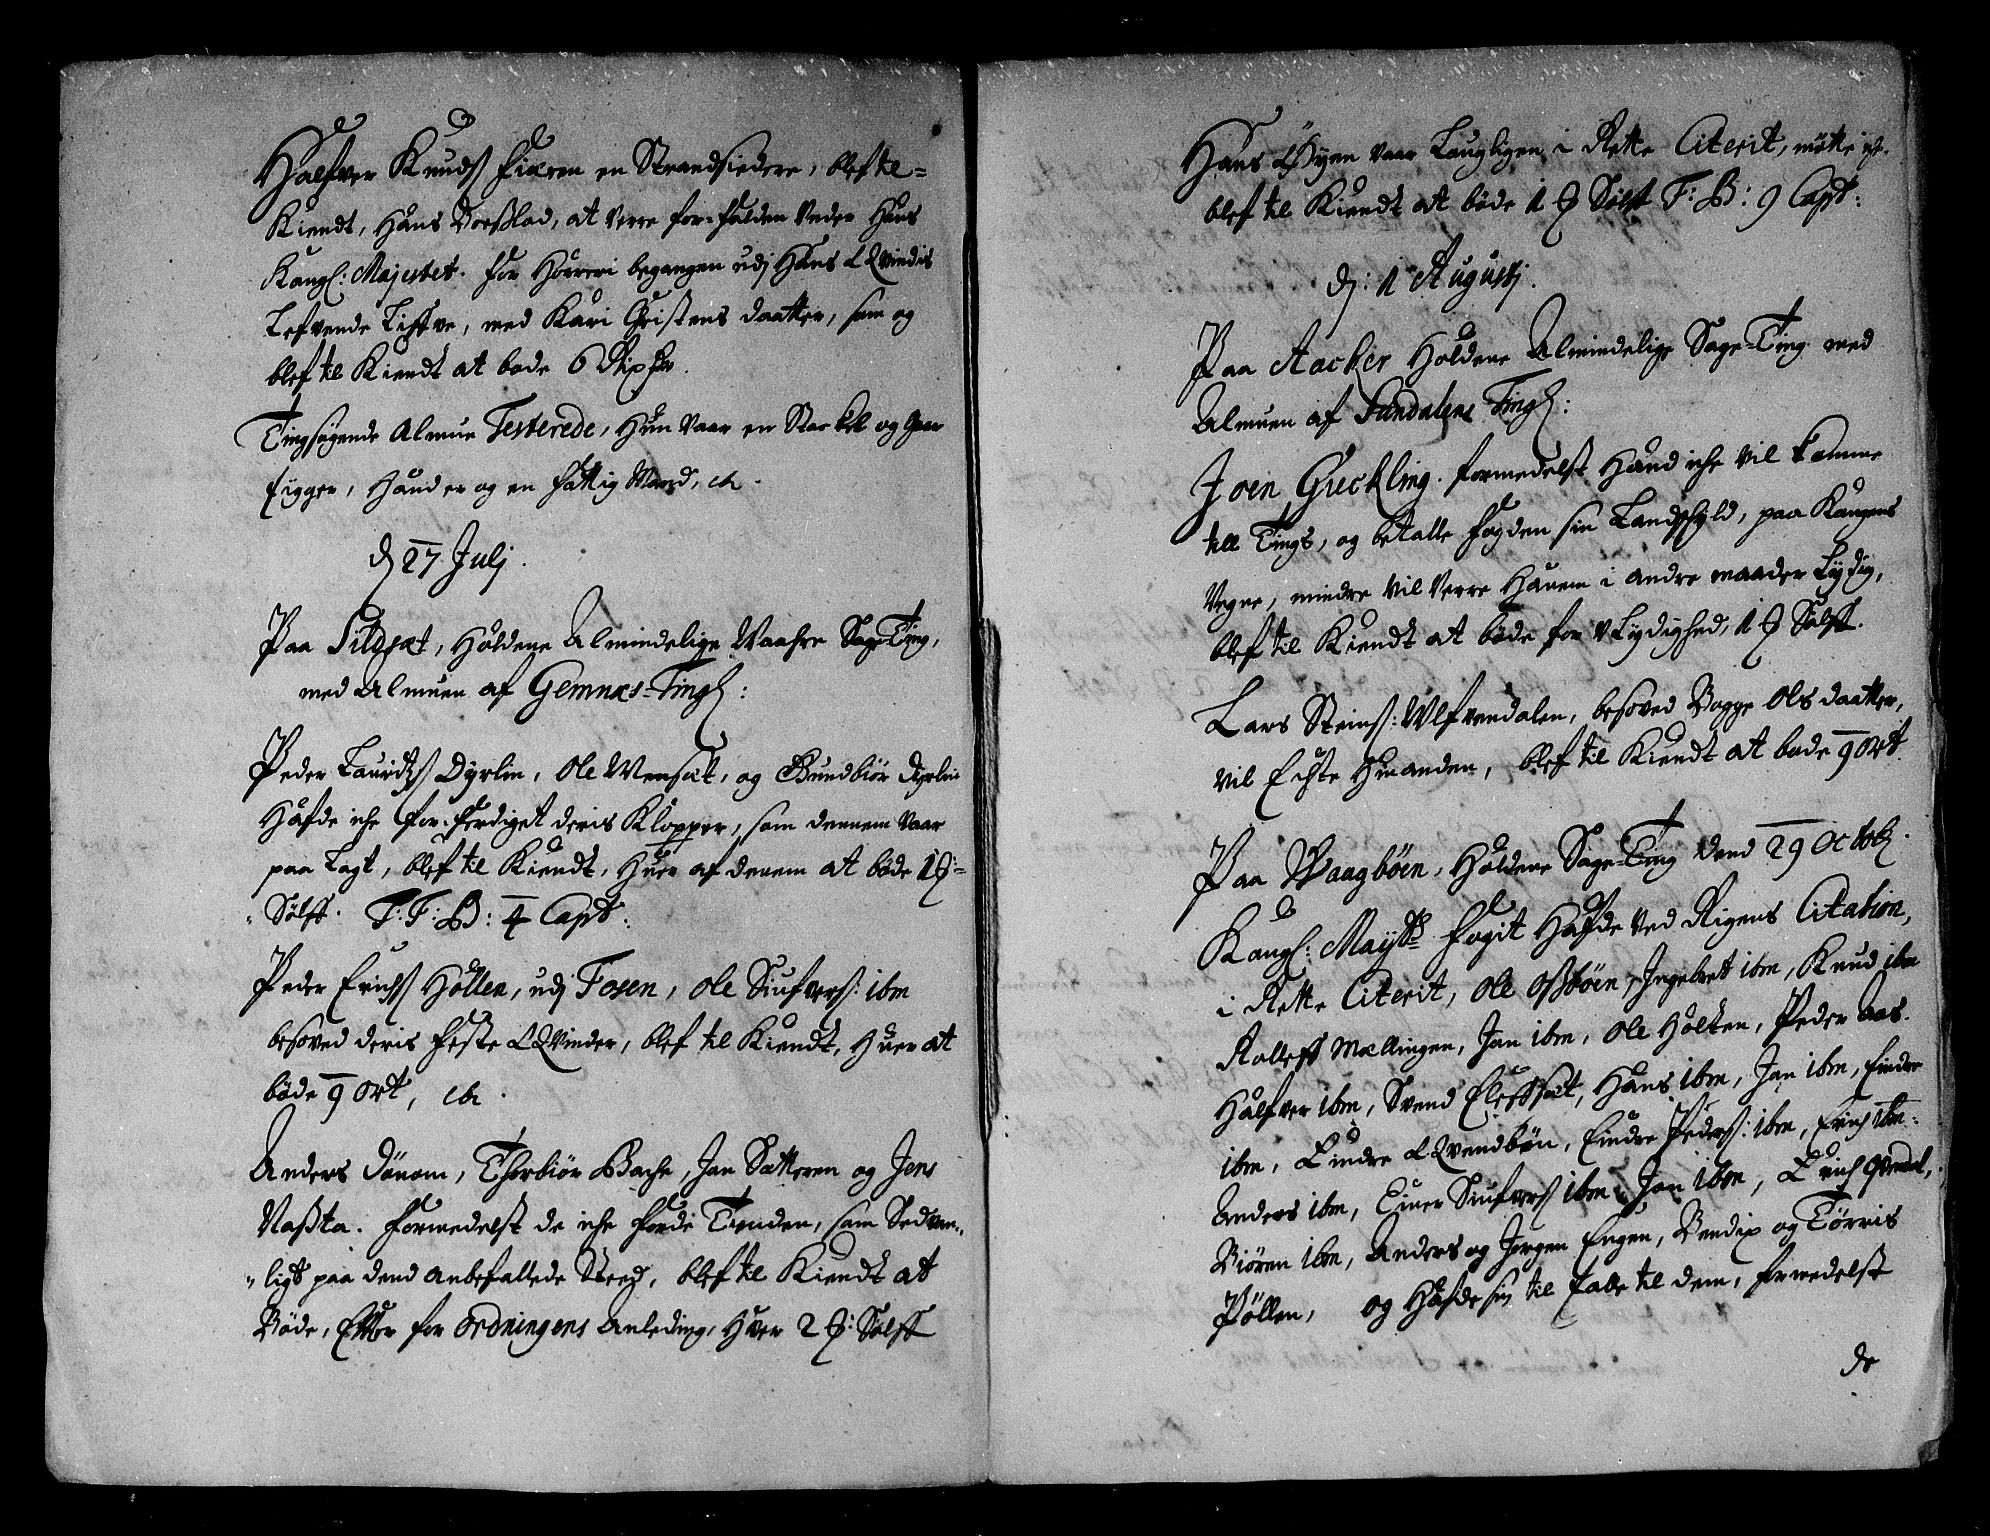 Halfver Knuds: Fixren en Strandsiedere, blef til-
Kiendt, Hans Boeslod, at verre for-falden Under Hans
Kongl: Majestet. for Horreri begangen udj Hans EQvindis
Lefvende Liffve, med Kari Christens daatter, som og
blef til Kiendt at bøde 6
Tingsøgende Almue Testerede, Hun vaar en Stackel og gaar
tigger, Hand er og en fattig Mand,
d 27 Julj.
Paa Sildset, Holdene Almindelige Vaahre Sage-Ting,
med Almuen af Gemnæs-Tingl:
Peder Lauridtz: Dyrlin, Ole Wensæt, og Gundbiør Dyrlin
Hafde iche for-ferdiget deris Klopper, som dennem vaar
paa Lagt, blef til Kiendt, Huer af denem at bøde 1 :
Sølff. T: F: B: 4 Capt:
Peder Erichs: Hollen, udj Fosen, Ole Siufvers: ibm
besoved deris feste EQvinder, blef til Kiendt, Huer at
bøde 9 ort,
Anders Dønom, Thorbiør Bache, Jon Sætteren og Jens
Naßta. formedelst de iche førde Tienden, som Sedvan-
ligt paa dend anbefallede Sted, blef til Kiendt at
Bøde, Efter for ordningens Anleding, Hver 2 : Sølff
Hans Øyen vaar Lauglligen i Rette Citerit, mötte ich.
blef til Kiendt at bøde 1 Sølff T: B: 9 Capt:
d: 1 Augustj.
Paa Aacker Holdene Almindelige Sage-Ting med
Almuen af Sundalens Tingl:
Joen Greckling. formedelst Hand iche vil komme
till Tings, og betalle fogden sin Landschyld, paa Kongens
Vegne, mindre vil verre Hanem i andre maader Lydig,
blef til Kiendt at bøde for ULydighed, 1 Sølff.
Lars Steins: Ulfvendalen, besoved Bogge Ols daatter,
vil Echte Huranden, blef til Kiendt at bøde 9 ort
Paa Waagbøen, Holdene Sage-Ting dend 29 Octob:
Kongl: Maytts fogit Hafde ved Rigens Citation,
i Rette Citerit, Ole Oßbøen, Ingebret ibm, Knud ibm
Rolleff Mællingen, Jon ibm, Ole Holten, Peder Aas.
Halfver ibm, Svend Eleffsæt, Hans ibm, Jon ibm, Eindre
ibm, Eindre EQvendbøn, Eindre Peders: ibm, Erich ibm:
Anders ibm, Einer Siufvers ibm Jon ibm, Erich
Biören ibm, Anders og Jorgen Engen, Bendix og Törris
Pöllen, og Hafde sig til talle til dem, formedelst
de